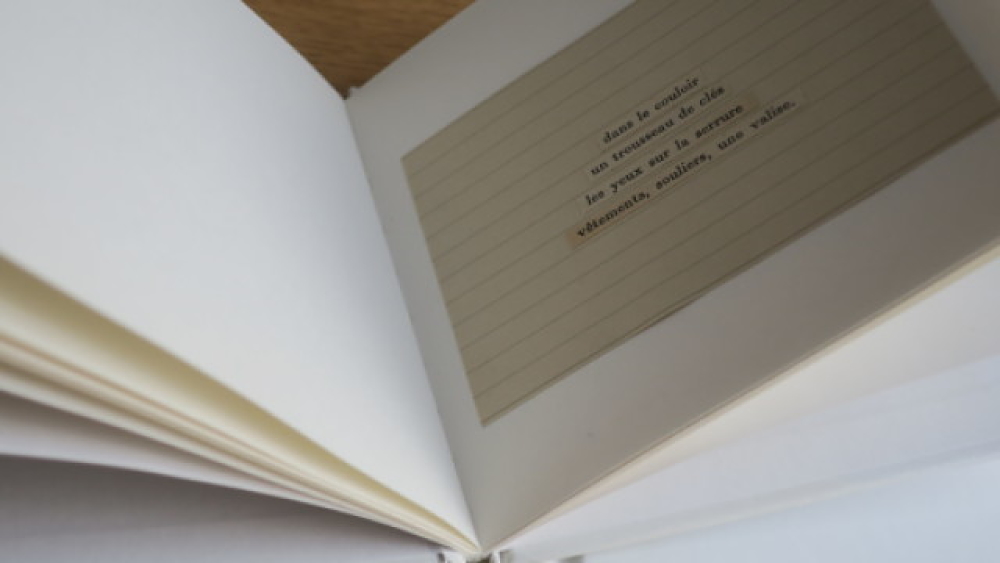 dans le couloir
un trousseau de clés
les yeux sur la serrure
vêtements, souliers, une valise.